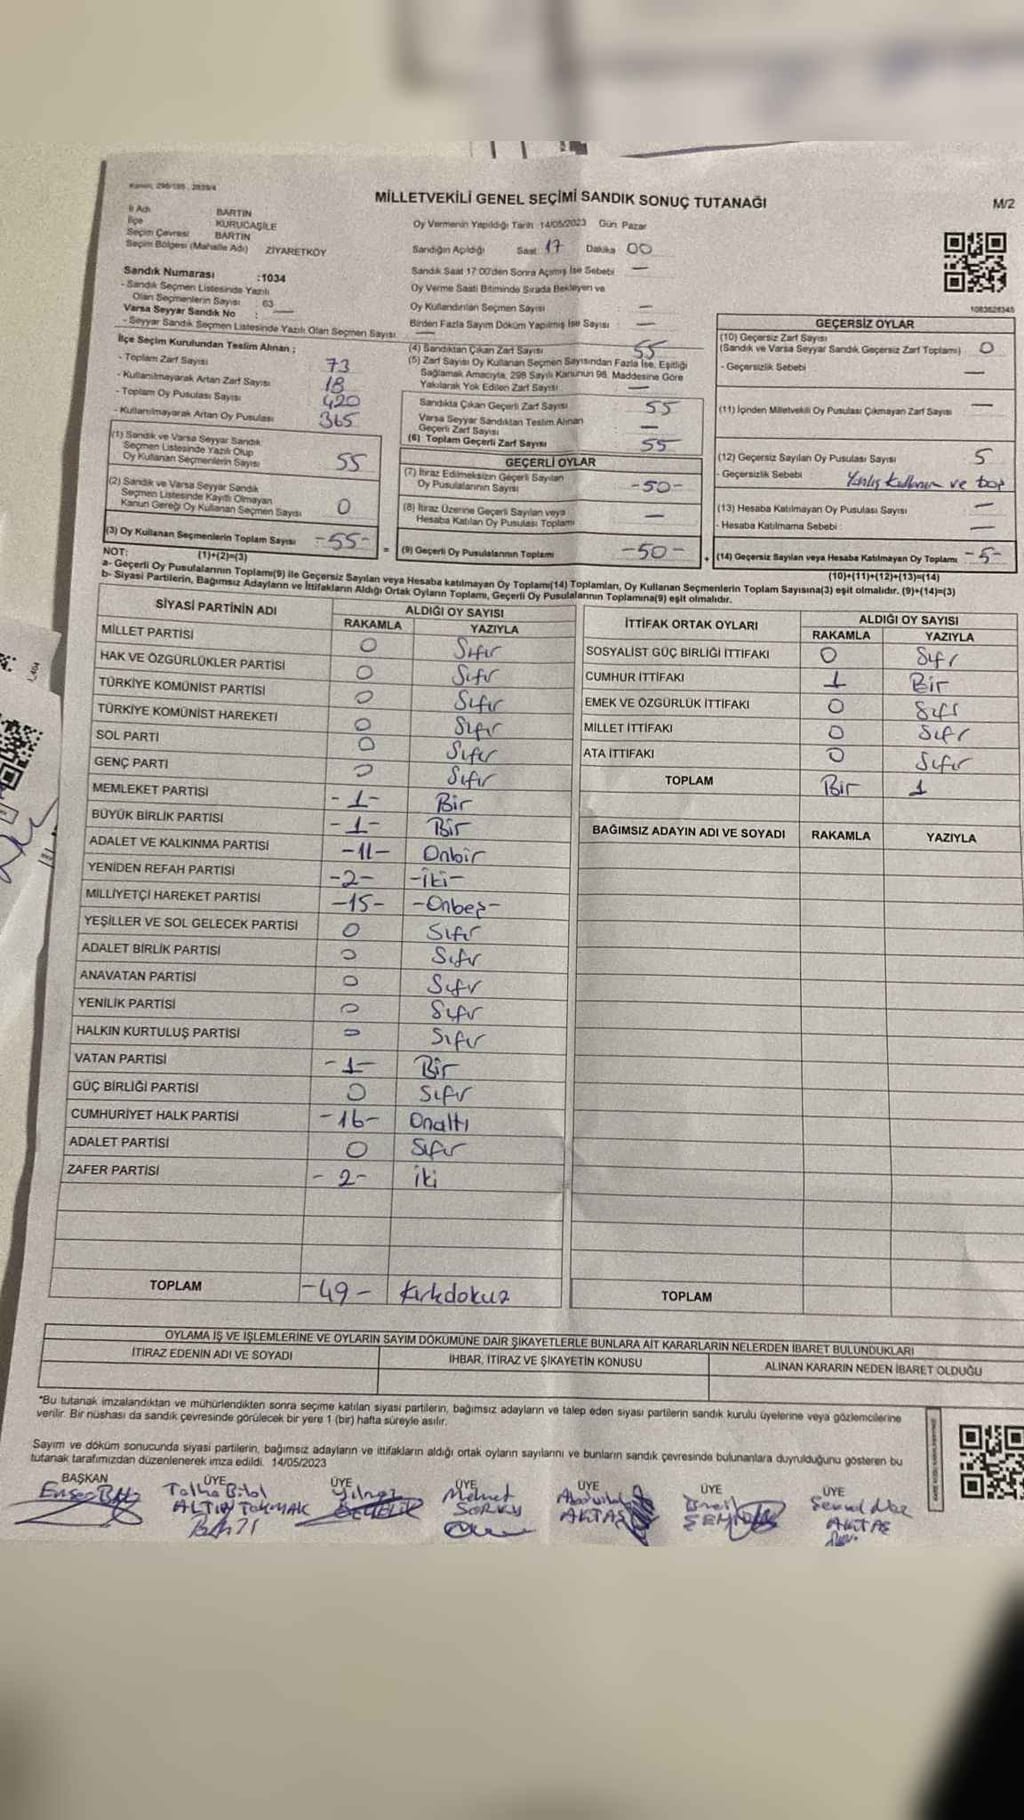 Kanun: 298/105, 2839/4
MİLLETVEKİLİ GENEL SEÇİMİ SANDIK SONUÇ TUTANAĞI
M/2
İl Adı BARTIN
İlçe KURUCAŞİLE
Seçim Çevresi BARTIN
Seçim Bölgesi (Mahalle Adı) ZİYARETKÖY
Oy Vermenin Yapıldığı Tarih 14/05/2023 Gün Pazar
Sandığın Açıldığı Saat 17 Dakika 00
Sandık Saat 17:00'den Sonra Açılmış İse Sebebi —
Oy Verme Saati Bitiminde Sırada Bekleyen ve
Oy Kullandırılan Seçmen Sayısı —
Birden Fazla Sayım Döküm Yapılmış İse Sayısı —
Sandık Numarası :1034
- Sandık Seçmen Listesinde Yazılı
Olan Seçmenlerin Sayısı : 63
Varsa Seyyar Sandık No : —
- Seyyar Sandık Seçmen Listesinde Yazılı Olan Seçmen Sayısı —
İlçe Seçim Kurulundan Teslim Alınan ;
- Toplam Zarf Sayısı 73
- Kullanılmayarak Artan Zarf Sayısı 18
- Toplam Oy Pusulası Sayısı 420
- Kullanılmayarak Artan Oy Pusulası 365
(1) Sandık ve Varsa Seyyar Sandık
Seçmen Listesinde Yazılı Olup
Oy Kullanan Seçmenlerin Sayısı 55
(2) Sandık ve Varsa Seyyar Sandık
Seçmen Listesinde Kayıtlı Olmayan
Kanun Gereği Oy Kullanan Seçmen Sayısı 0
(3) Oy Kullanan Seçmenlerin Toplam Sayısı -55-
(1)+(2)=(3)
(4) Sandıktan Çıkan Zarf Sayısı 55
(5) Zarf Sayısı Oy Kullanan Seçmen Sayısından Fazla İse, Eşitliği
Sağlamak Amacıyla, 298 Sayılı Kanunun 98. Maddesine Göre
Yakılarak Yok Edilen Zarf Sayısı —
Sandıkta Çıkan Geçerli Zarf Sayısı 55
Varsa Seyyar Sandıktan Teslim Alınan
Geçerli Zarf Sayısı —
(6) Toplam Geçerli Zarf Sayısı 55
GEÇERLİ OYLAR
(7) İtiraz Edilmeksizin Geçerli Sayılan
Oy Pusulalarının Sayısı -50-
(8) İtiraz Üzerine Geçerli Sayılan veya
Hesaba Katılan Oy Pusulası Toplamı —
= (9) Geçerli Oy Pusulalarının Toplamı -50- +
1083628345
GEÇERSİZ OYLAR
(10) Geçersiz Zarf Sayısı
(Sandık ve Varsa Seyyar Sandık Geçersiz Zarf Toplamı) 0
- Geçersizlik Sebebi —
(11) İçinden Milletvekili Oy Pusulası Çıkmayan Zarf Sayısı —
(12) Geçersiz Sayılan Oy Pusulası Sayısı 5
- Geçersizlik Sebebi Yanlış Kullanım ve boş
(13) Hesaba Katılmayan Oy Pusulası Sayısı —
- Hesaba Katılmama Sebebi : —
(14) Geçersiz Sayılan veya Hesaba Katılmayan Oy Toplamı -5-
(10)+(11)+(12)+(13)=(14)
NOT:
a- Geçerli Oy Pusulalarının Toplamı(9) ile Geçersiz Sayılan veya Hesaba katılmayan Oy Toplamı(14) Toplamları, Oy Kullanan Seçmenlerin Toplam Sayısına(3) eşit olmalıdır. (9)+(14)=(3)
b- Siyasi Partilerin, Bağımsız Adayların ve İttifakların Aldığı Ortak Oyların Toplamı, Geçerli Oy Pusulalarının Toplamına(9) eşit olmalıdır.
SİYASİ PARTİNİN ADI ALDIĞI OY SAYISI
RAKAMLA YAZIYLA
MİLLET PARTİSİ 0 Sıfır
HAK VE ÖZGÜRLÜKLER PARTİSİ 0 Sıfır
TÜRKİYE KOMÜNİST PARTİSİ 0 Sıfır
TÜRKİYE KOMÜNİST HAREKETİ 0 Sıfır
SOL PARTİ 0 Sıfır
GENÇ PARTİ 0 Sıfır
MEMLEKET PARTİSİ -1- Bir
BÜYÜK BİRLİK PARTİSİ -1- Bir
ADALET VE KALKINMA PARTİSİ -11- Onbir
YENİDEN REFAH PARTİSİ -2- -İki-
MİLLİYETÇİ HAREKET PARTİSİ -15- -Onbeş-
YEŞİLLER VE SOL GELECEK PARTİSİ 0 Sıfır
ADALET BİRLİK PARTİSİ 0 Sıfır
ANAVATAN PARTİSİ 0 Sıfır
YENİLİK PARTİSİ 0 Sıfır
HALKIN KURTULUŞ PARTİSİ 0 Sıfır
VATAN PARTİSİ -1- Bir
GÜÇ BİRLİĞİ PARTİSİ 0 Sıfır
CUMHURİYET HALK PARTİSİ -16- Onaltı
ADALET PARTİSİ 0 Sıfır
ZAFER PARTİSİ -2- İki
TOPLAM -49- Kırkdokuz
İTTİFAK ORTAK OYLARI ALDIĞI OY SAYISI
RAKAMLA YAZIYLA
SOSYALİST GÜÇ BİRLİĞİ İTTİFAKI 0 Sıfır
CUMHUR İTTİFAKI 1 Bir
EMEK VE ÖZGÜRLÜK İTTİFAKI 0 Sıfır
MİLLET İTTİFAKI 0 Sıfır
ATA İTTİFAKI 0 Sıfır
TOPLAM Bir 1
BAĞIMSIZ ADAYIN ADI VE SOYADI RAKAMLA YAZIYLA
TOPLAM
OYLAMA İŞ VE İŞLEMLERİNE VE OYLARIN SAYIM DÖKÜMÜNE DAİR ŞİKAYETLERLE BUNLARA AİT KARARLARIN NELERDEN İBARET BULUNDUKLARI
İTİRAZ EDENİN ADI VE SOYADI İHBAR, İTİRAZ VE ŞİKAYETİN KONUSU ALINAN KARARIN NEDEN İBARET OLDUĞU
*Bu tutanak imzalandıktan ve mühürlendikten sonra seçime katılan siyasi partilerin, bağımsız adayların ve talep eden siyasi partilerin sandık kurulu üyelerine veya gözlemcilerine
verilir. Bir nüshası da sandık çevresinde görülecek bir yere 1 (bir) hafta süreyle asılır.
Sayım ve döküm sonucunda siyasi partilerin, bağımsız adayların ve ittifakların aldığı ortak oyların sayılarını ve bunların sandık çevresinde bulunanlara duyrulduğunu gösteren bu
tutanak tarafımızdan düzenlenerek imza edildi. 14/05/2023
BAŞKAN ÜYE ÜYE ÜYE ÜYE ÜYE ÜYE
Talha Bilal Yılmaz Mehmet
ALTIN TOKMAK AKTAŞ AKTAŞ